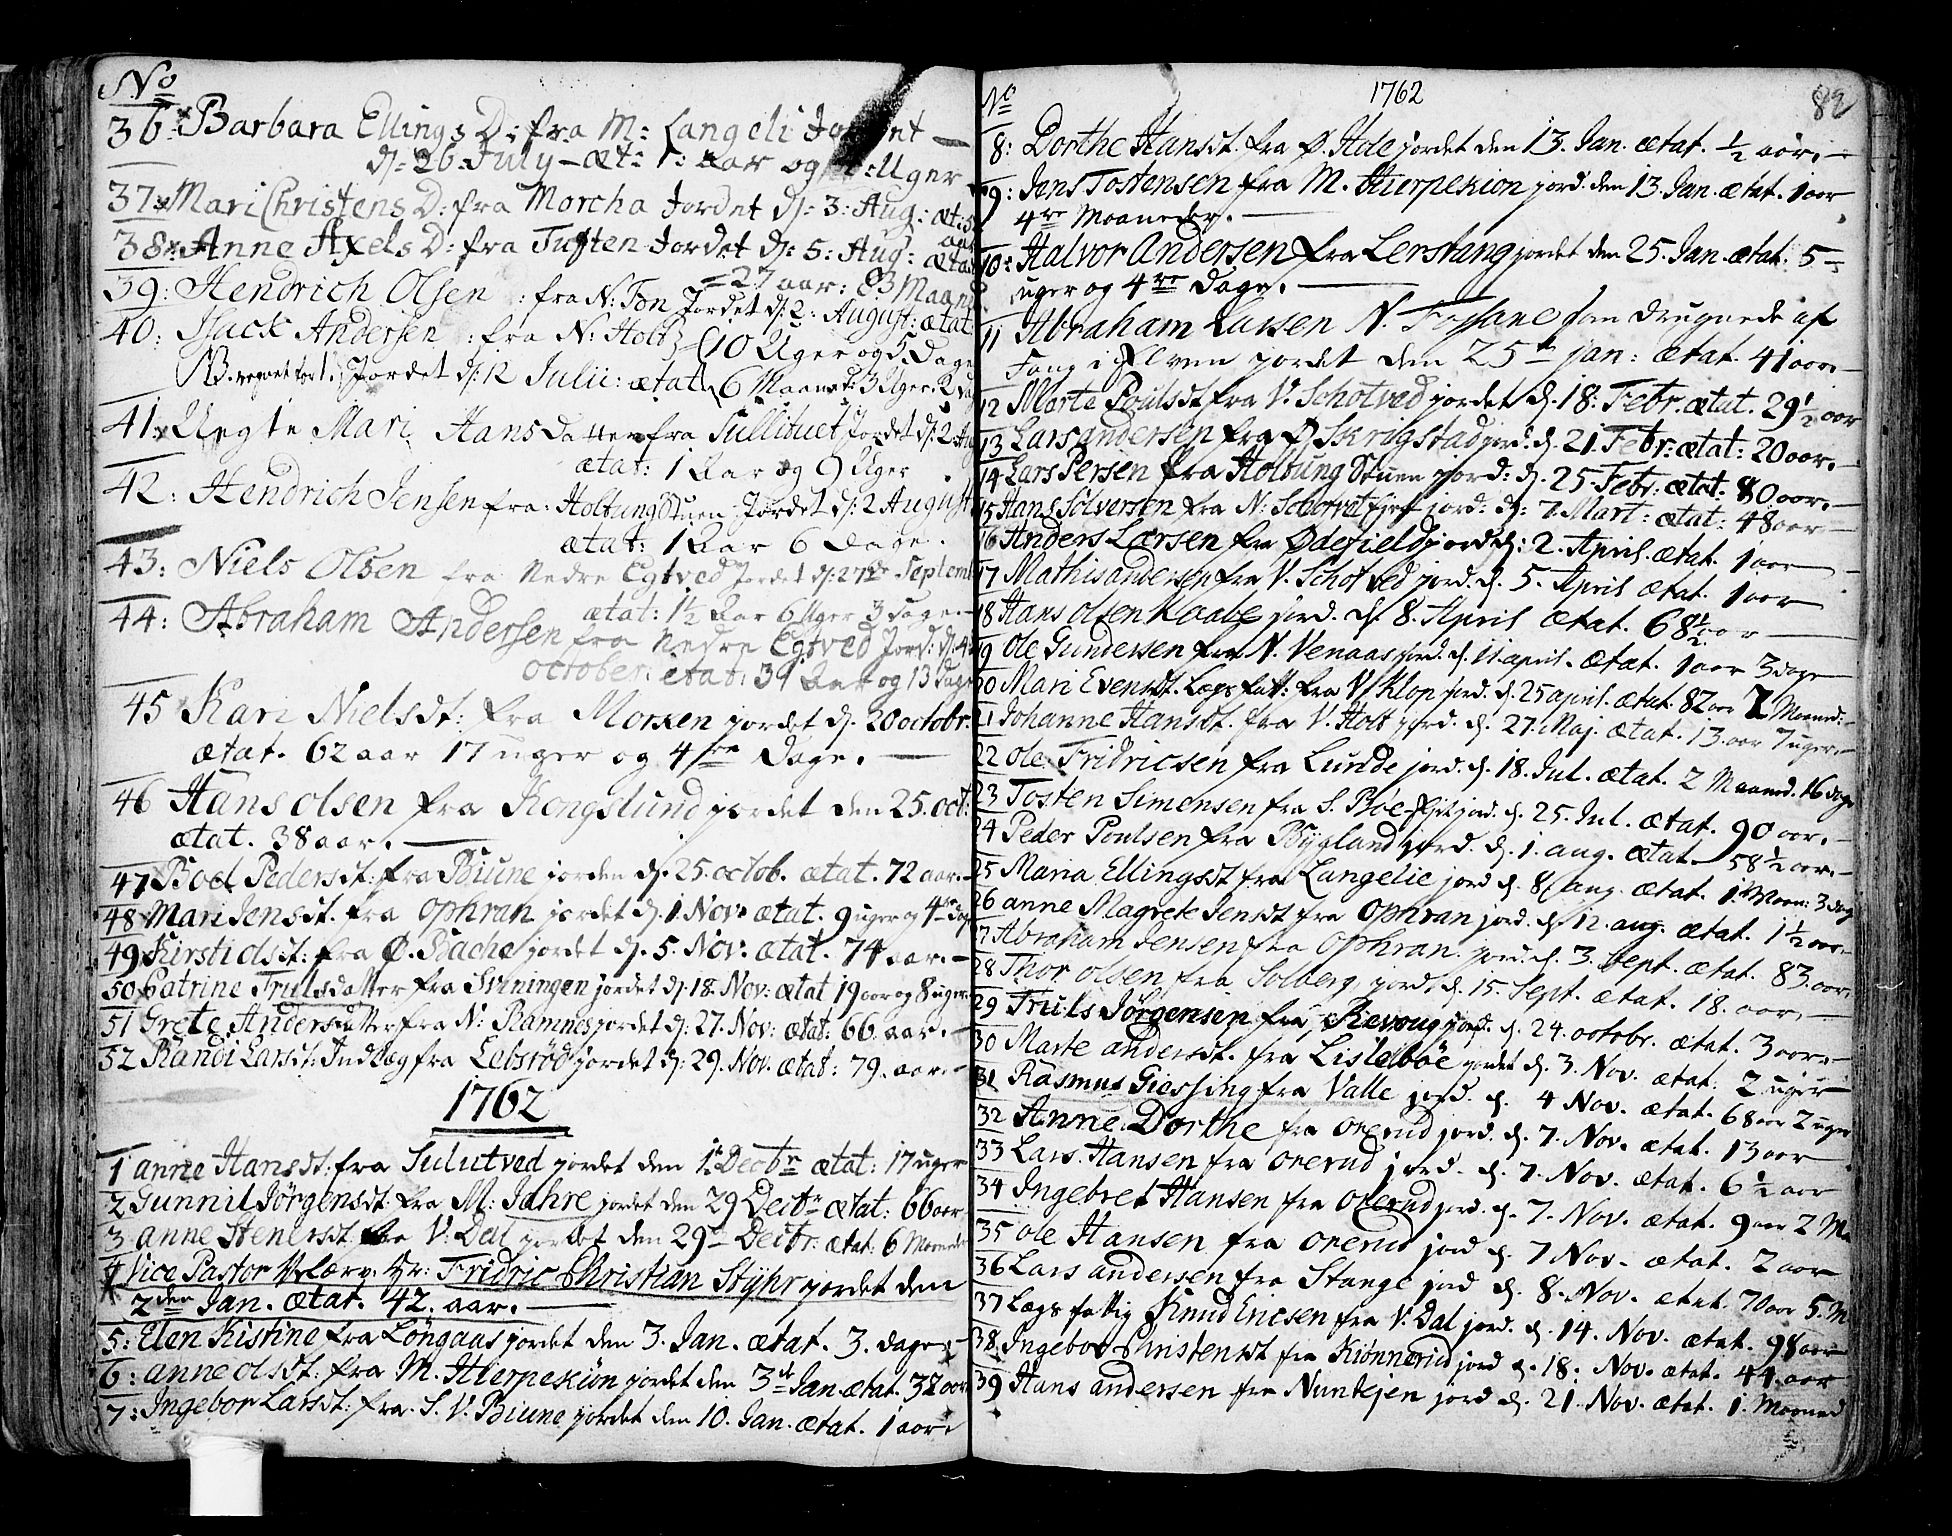 No
36: Barbara Ellings D: fra M: Langeli Jordet
d: 26 July - æt: 1: aar og Uger
37 Mari Christens D: fra Morcha Jordet d: 3: Aug: æt: 5
aar
38: Anne Axels D: fra Tuften Jordet d: 5: Aug: ætat
= 27 aar: 8 Maan
39: Hendrich Olsen : fra N: Ton Jordet d: 2: August: ætat
40: Isack Andersen : fra N: Holt (10 Uger og 5 Dage
NB. Jordet d: 12 Julii: ætat 6 Maaned: 3 Uger: 2 da
41 Uegte Mari Hans Datter fra Sullituet Jordet d: 2 Au
ætat: 1 Aar og 9 Uger
42: Hendrich Jensen fra Holtung Stuen Jordet d: 2 August
ætat: 1 Aar 6 Dage.
43: Niels Olsen fra Nedre Egtved Jordet d: 27de Septemb
ætat: 1½ Aar 6 Uger 3 Dage
44: Abraham Andersen fra Nedre Egtved Jord: d: 4
october: etat: 39 Aar og 13 Dage
45 Kari Nielsdt: fra Morken jordet d. 20 octobr.
ætat. 62 aar 17 uger og 4re Dage.
46 Hans olsen fra Kongslund jordet den 25. oct:
ætat. 38 aar.
47 Boel Pedersdt: fra Biune jorden d. 25. octob. ætat. 72 aar.
48 Mari Jensdt. fra Ophran jordet d. 1 Nov. ætat. 9 uger og 4re dage
49 Kirsti olsdt: fra Ø. Bache jordet d. 5. Nov: ætat. 74 aar.
50 Catrine Trulsdatter fra Sviningen jordet d: 18. Nov: ætat 19 aar og 8 uger.
51 Grete Andersdatter fra N: Ramnes jordet d: 27. Nov: ætat: 66 aar.
52 Randi Larsdt: Indlæg fra Lebsrød jordet d: 29. Nov. ætat: 79. aar.
1762
1 anne Hansdt: fra Sulutved jordet den 1te Decbr ætat: 17 uger
2 Gunnil Jørgensdt. fra M: Jahre jordet den 29 Decbr ætat: 66 aar
3 anne Stenersdt. fra V: Dal jordet den 29de Decbr. ætat. 6 Maaneder
4 Vice Pastor Hr: Fridric Christian Stÿhr jordet den
2den Jan. ætat. 42. aar.
5: Elen Kistine fra Løngaas jordet den 3. Jan. ætat. 3. dage
6: anne olsdt: fra M. Hierpekiøn jordet den 3die Jan. ætat. 32 aar
7: Ingebor Larsdt: fra S. V. Biune jordet den 10. Jan. ætat. 1 aar.
1762
82
No
8: Dorthe Hansdt. fra Ø. Hde jordet den 13. Jan. ætat. ½ aar.
9: Jens Tostensen fra M. Hierpekion jord. den 13. Jan. ætat. 1 aar
4re Maaneder.
10: Halvor Andersen fra Lerstang jordet den 25. Jan. ætat. 5
uger og 4re Dage.
11 Abraham Larsen N. Fossane som Drugnede af
Fang i Elven jordet den 25de jan: ætat. 41 aar.
12 Marte Poulsdt fra V. Schotved jordet d. 18. Febr. ætat. 29½ aar
13 Lars andersen fra Ø Skrigstad jord: d. 21 Febr: ætat: 20 aar.
14 Lars Persen fra Holtung Stuen jord: d. 25 Febr: ætat. 80 aar.
15 Hans Sølversen fra N: Schotvet jord: d: 7. Mart: ætat: 48 aar
16 Anders Larsen fra Ødefield jord d: 2. April ætat. 1 aar
17 Mathis andersen fra V. Schotved jord. d. 5. April ætat. 1 aar
18 Hans olsen Kaabe jord. d. 8. April ætat. 68½ aar
19 ole Gundersen fra N. Venaas jord. d. 11. april. ætat. 1 aar 3 dage
20 Mari Evensdt. Lægsfatt: fra V. Klop jord. d. 25 april. ætat. 82 aar 1 Maaned.
21 Johanne Hansdt. fra V. Holt jord. d. 27. Maj. ætat. 13. aar 7 uger.
22 ole Fridricsen fra Lunde jord. d. 18. Jul. ætat. 2 Maaned. 16 dage
23 Tosten Simensen fra S. Bøe jord. d. 25. Jul. ætat. 90 aar.
24 Peder Poulsen fra Bÿgland jord. d. 1. aug. ætat. 58½ aar.
25 Maria Ellingsdt fra Langelie jord d. 8 aug. ætat. 1 Maan: 3 dage
26 anne Magrete Jensdt fra Ophran jord. d. 12. aug. ætat. 1½ aar.
27 Abraham Jensen fra Ophran. jord. d. 3. Sept. ætat. 83. aar.
28 Thor olsen fra Solberg jord. d. 15. Sept. ætat. 18. aar.
29 Truls Jørgensen fra Revoug jord. d. 24. octobr. ætat. 3 aar.
30 Marte andersdt. fra Lislebøe jordet d. 3. Nov. ætat. 2 uger
31 Rasmus Giessing fra Valle jord. d. 4 Nov. ætat. 68 aar 2 uger
32 Anne Dorthe fra Orerud jord. d. 7. Nov. ætat. 13 aar
33 Lars Hansen fra orerud jord. d. 7. Nov. ætat. 6½ aar
34 Ingebret Hansen fra Orerud jord. d. 7. Nov. ætat. 9 aar 2 M
35 ole Hansen fra orerud jord d. 7 Nov. ætat. 2 aar
36 Lars andersen fra Stange jord d. 8. Nov. ætat. 70 aar 5. M
37 Lægsfattig Knud Ericsen fra V: Dal jord. d. 14. Nov. ætat. 98 aar
38 Ingebor Christensdt fra Kiønnerud jord d. 18. Nov. ætat. 44. aar
39 Hans andersen fra Nunkjen jord d. 21. Nov. ætat. 1. Maaned